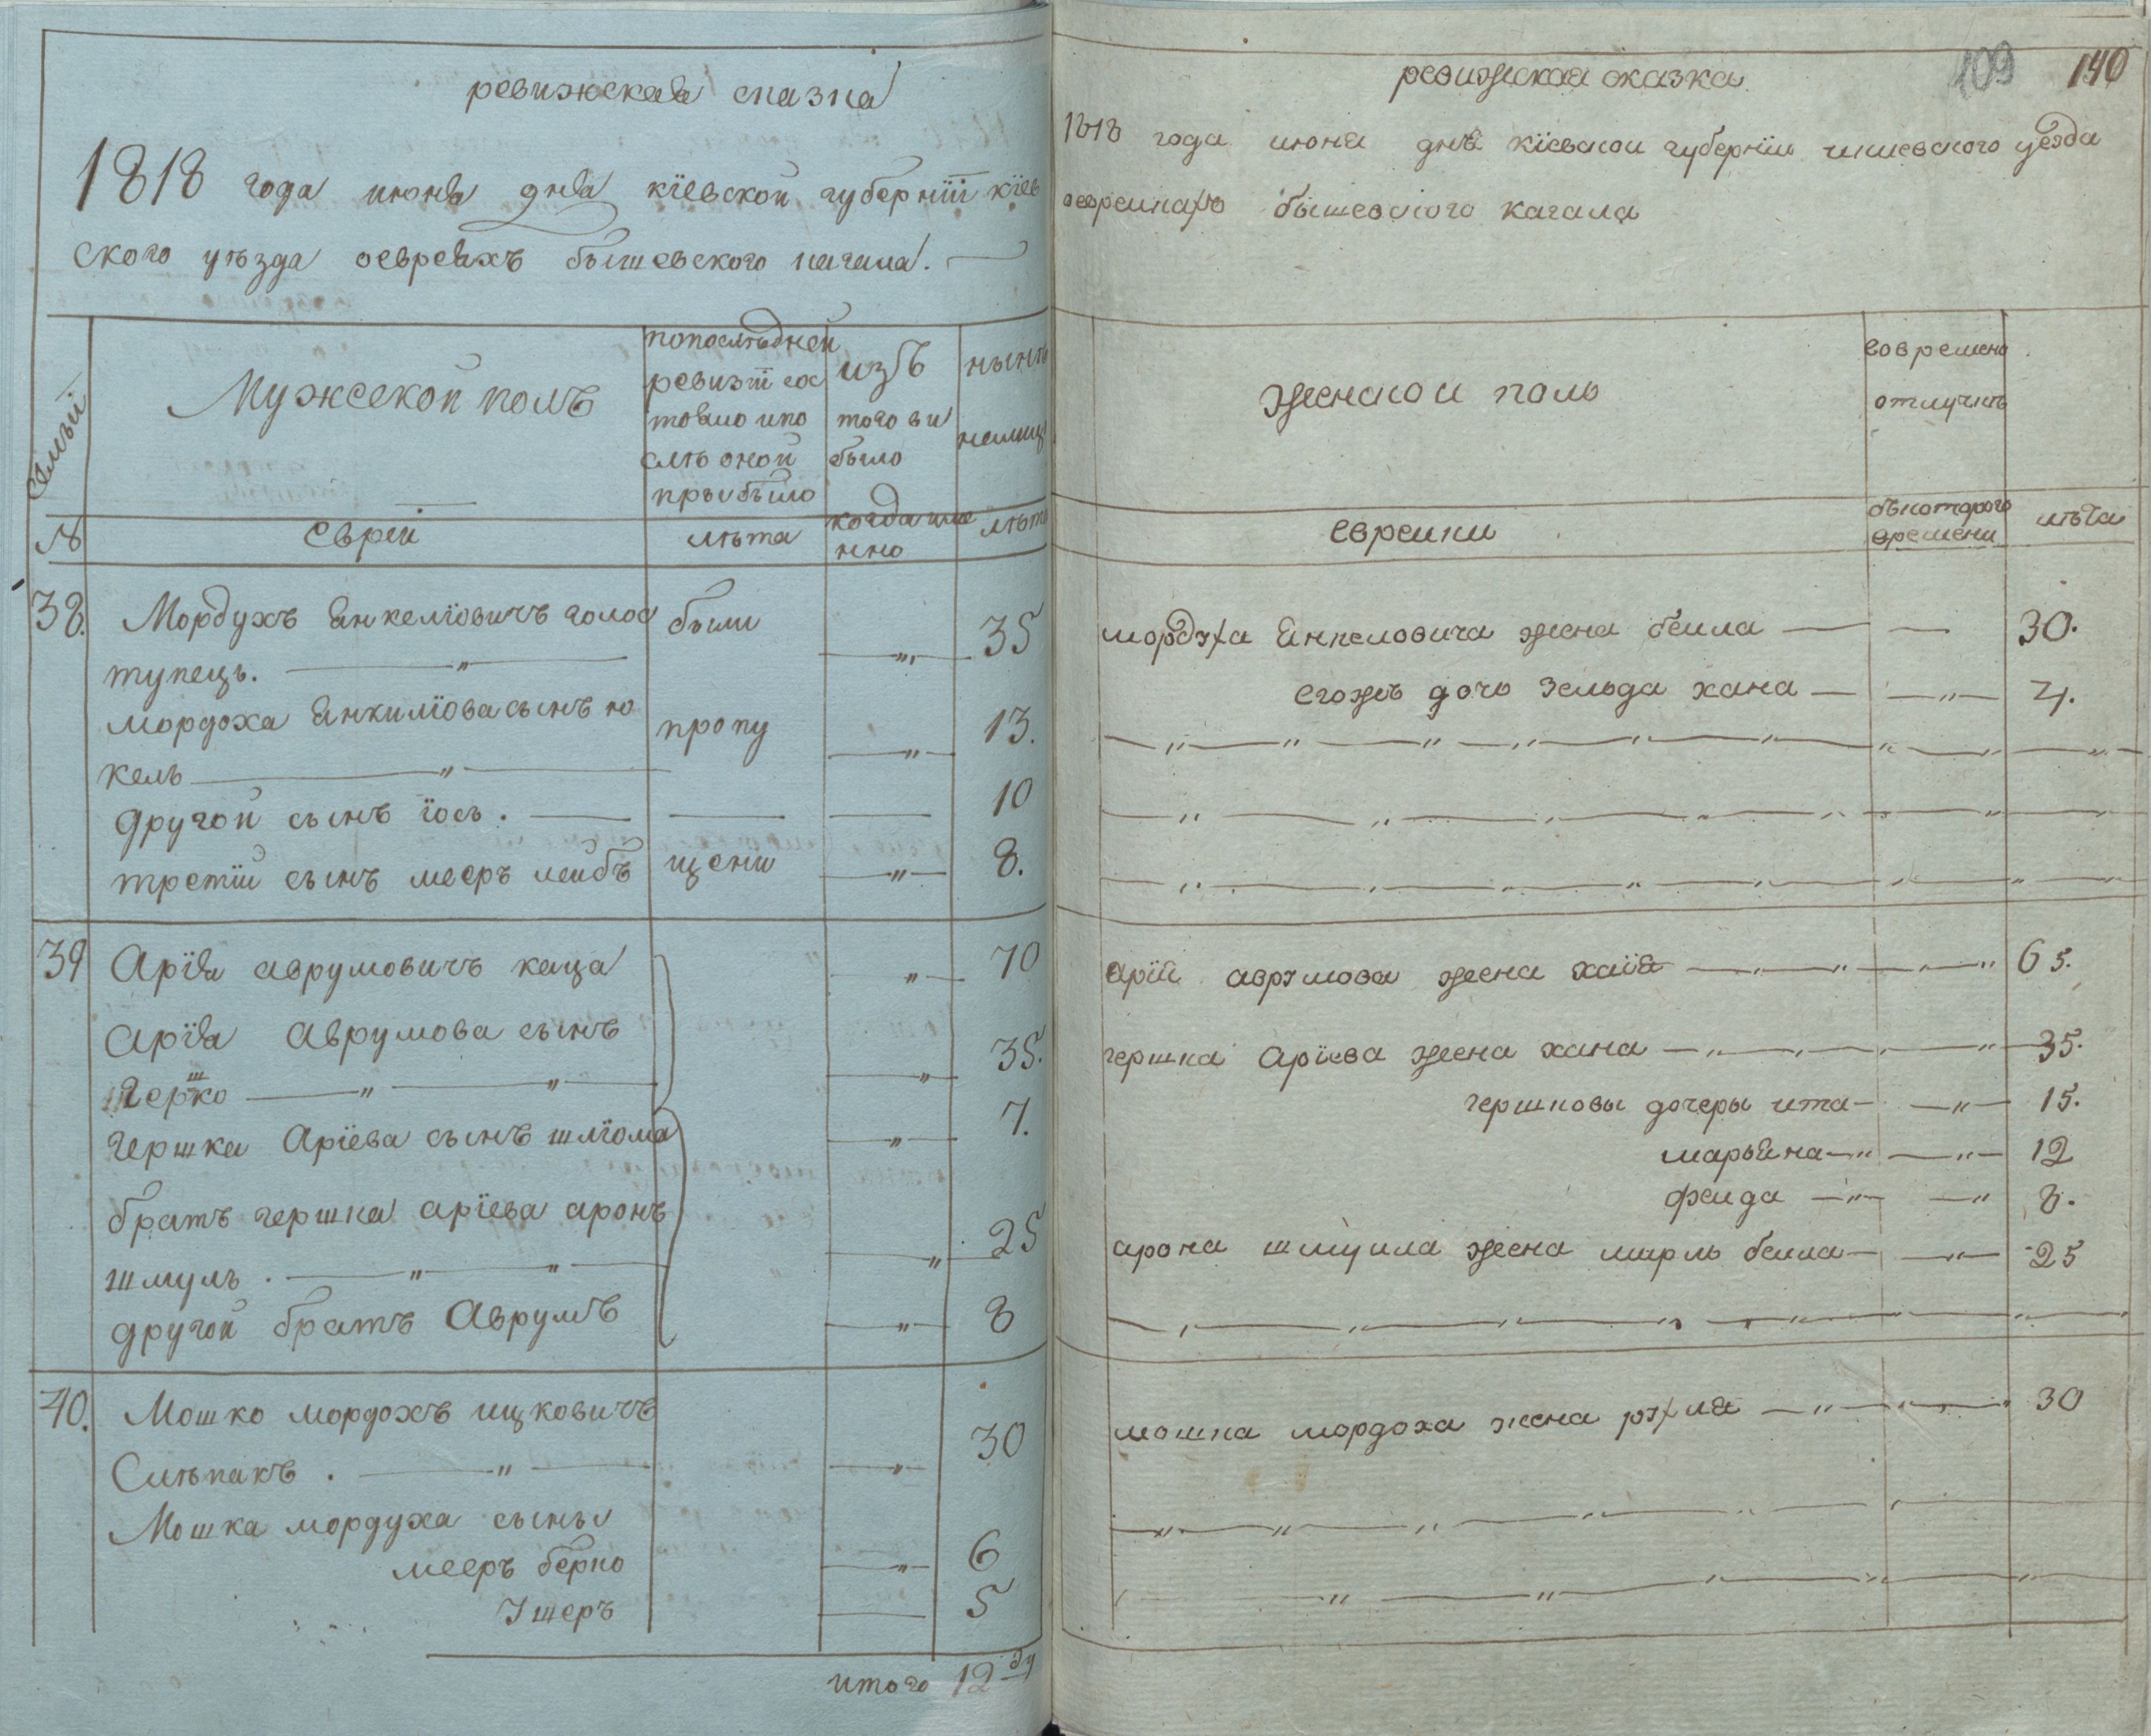 ревижская сказка
1818 года июня дня кїевской губернїи кїев
ского уѣзда оевреяхъ бышевского кагала.
Семьи
Мужеской полъ
попослѣдней
ревизїи сос
тояло ипо
слѣ оной
прыбыло
изъ
того вы
было
нынѣ
налицо
№
еврей
лѣта
когда име
нно
лѣта
38. Мордухъ Янкелїовичъ голос были
тупецъ. — " — — " — 35
мордоха Янкилїова сынъ ю пропу 13.
кель — " — — " —
другой сынъ їось. — — — 10
третїй сынъ мееръ лейбъ щени — " — 8.
39 Арїя аврумовичъ каца — " — 70
Арїя Аврумова сынъ
Гершко — " — " — — " — 35.
Гершка Арїева сынъ шлїома — " — 7.
братъ гершка арїева аронъ
шмуль. — " — " — — " — 25
другой братъ Аврумъ — " — 8
40. Мошко мордохъ ицковичъ
Слѣпакъ. — " — — " — 30
Мошка мордуха сыны
мееръ берко — " — 6
Ушеръ — 5
итого 12
109 140
ревижская сказка
1818 года июня дня кїевской губернїи кїевского уезда
оеврейкахъ бышевского кагала
женской полъ
вовремено
отлучкѣ
еврейки
съкоторого
времени
лѣта
мордуха Янкеловича жена бейла — — 30.
егожъ дочь зельда хана — — " — 4.
арїи аврумова жена хаїя — " — " — " 65.
гершка Арїева жена хана — " — " — 35.
гершковы дочеры ита — — " — 15.
марьяна — " — " — 12
фейда — " — — " 8.
арона шмуила жена мирль бейла — — " — 25
мошка мордоха жена рухля — " — " — 30